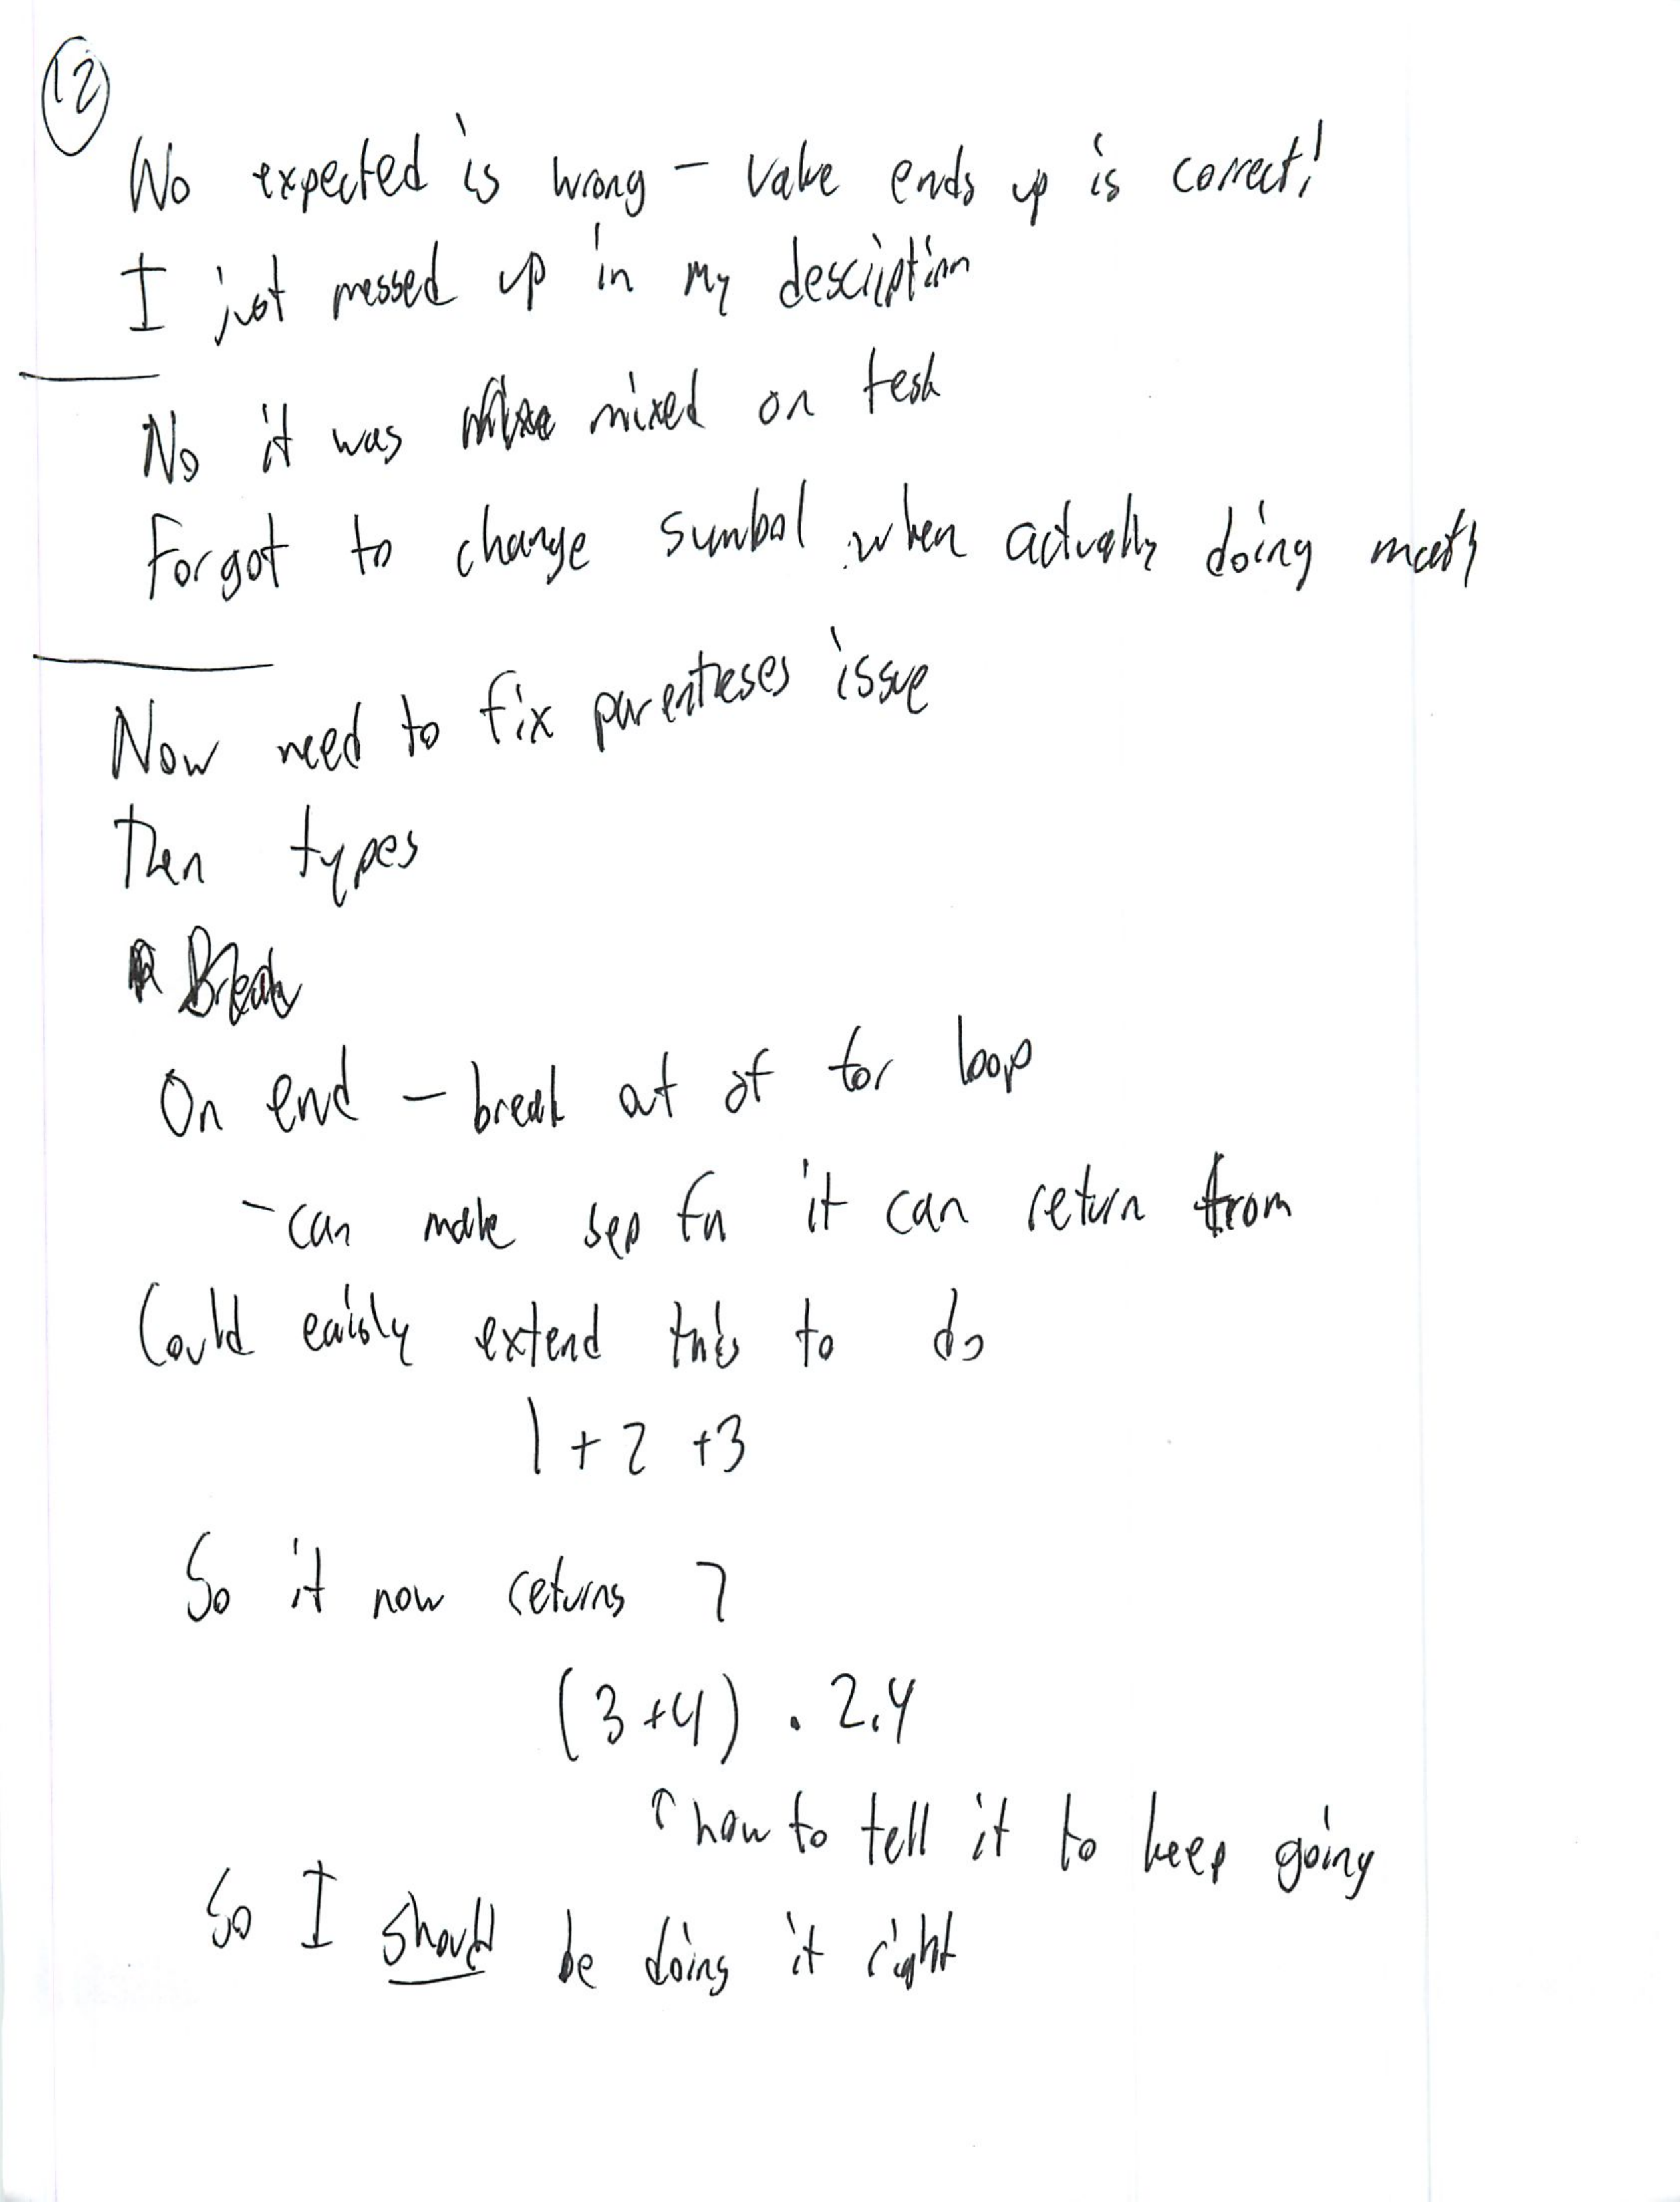 12
No expected is wrong - value ends up is correct!
I just messed up in my description
No it was mixed on test
Forgot to change sumbol when actually doing math
Now need to fix parentheses issue
Then types
Break
On end - break out of for loop
- can make sep fn it can return from
Could eaisly extend this to do
1 + 2 + 3
So it now returns 7
(3+4) . 2.4
↑ how to tell it to keep going
So I should be doing it right